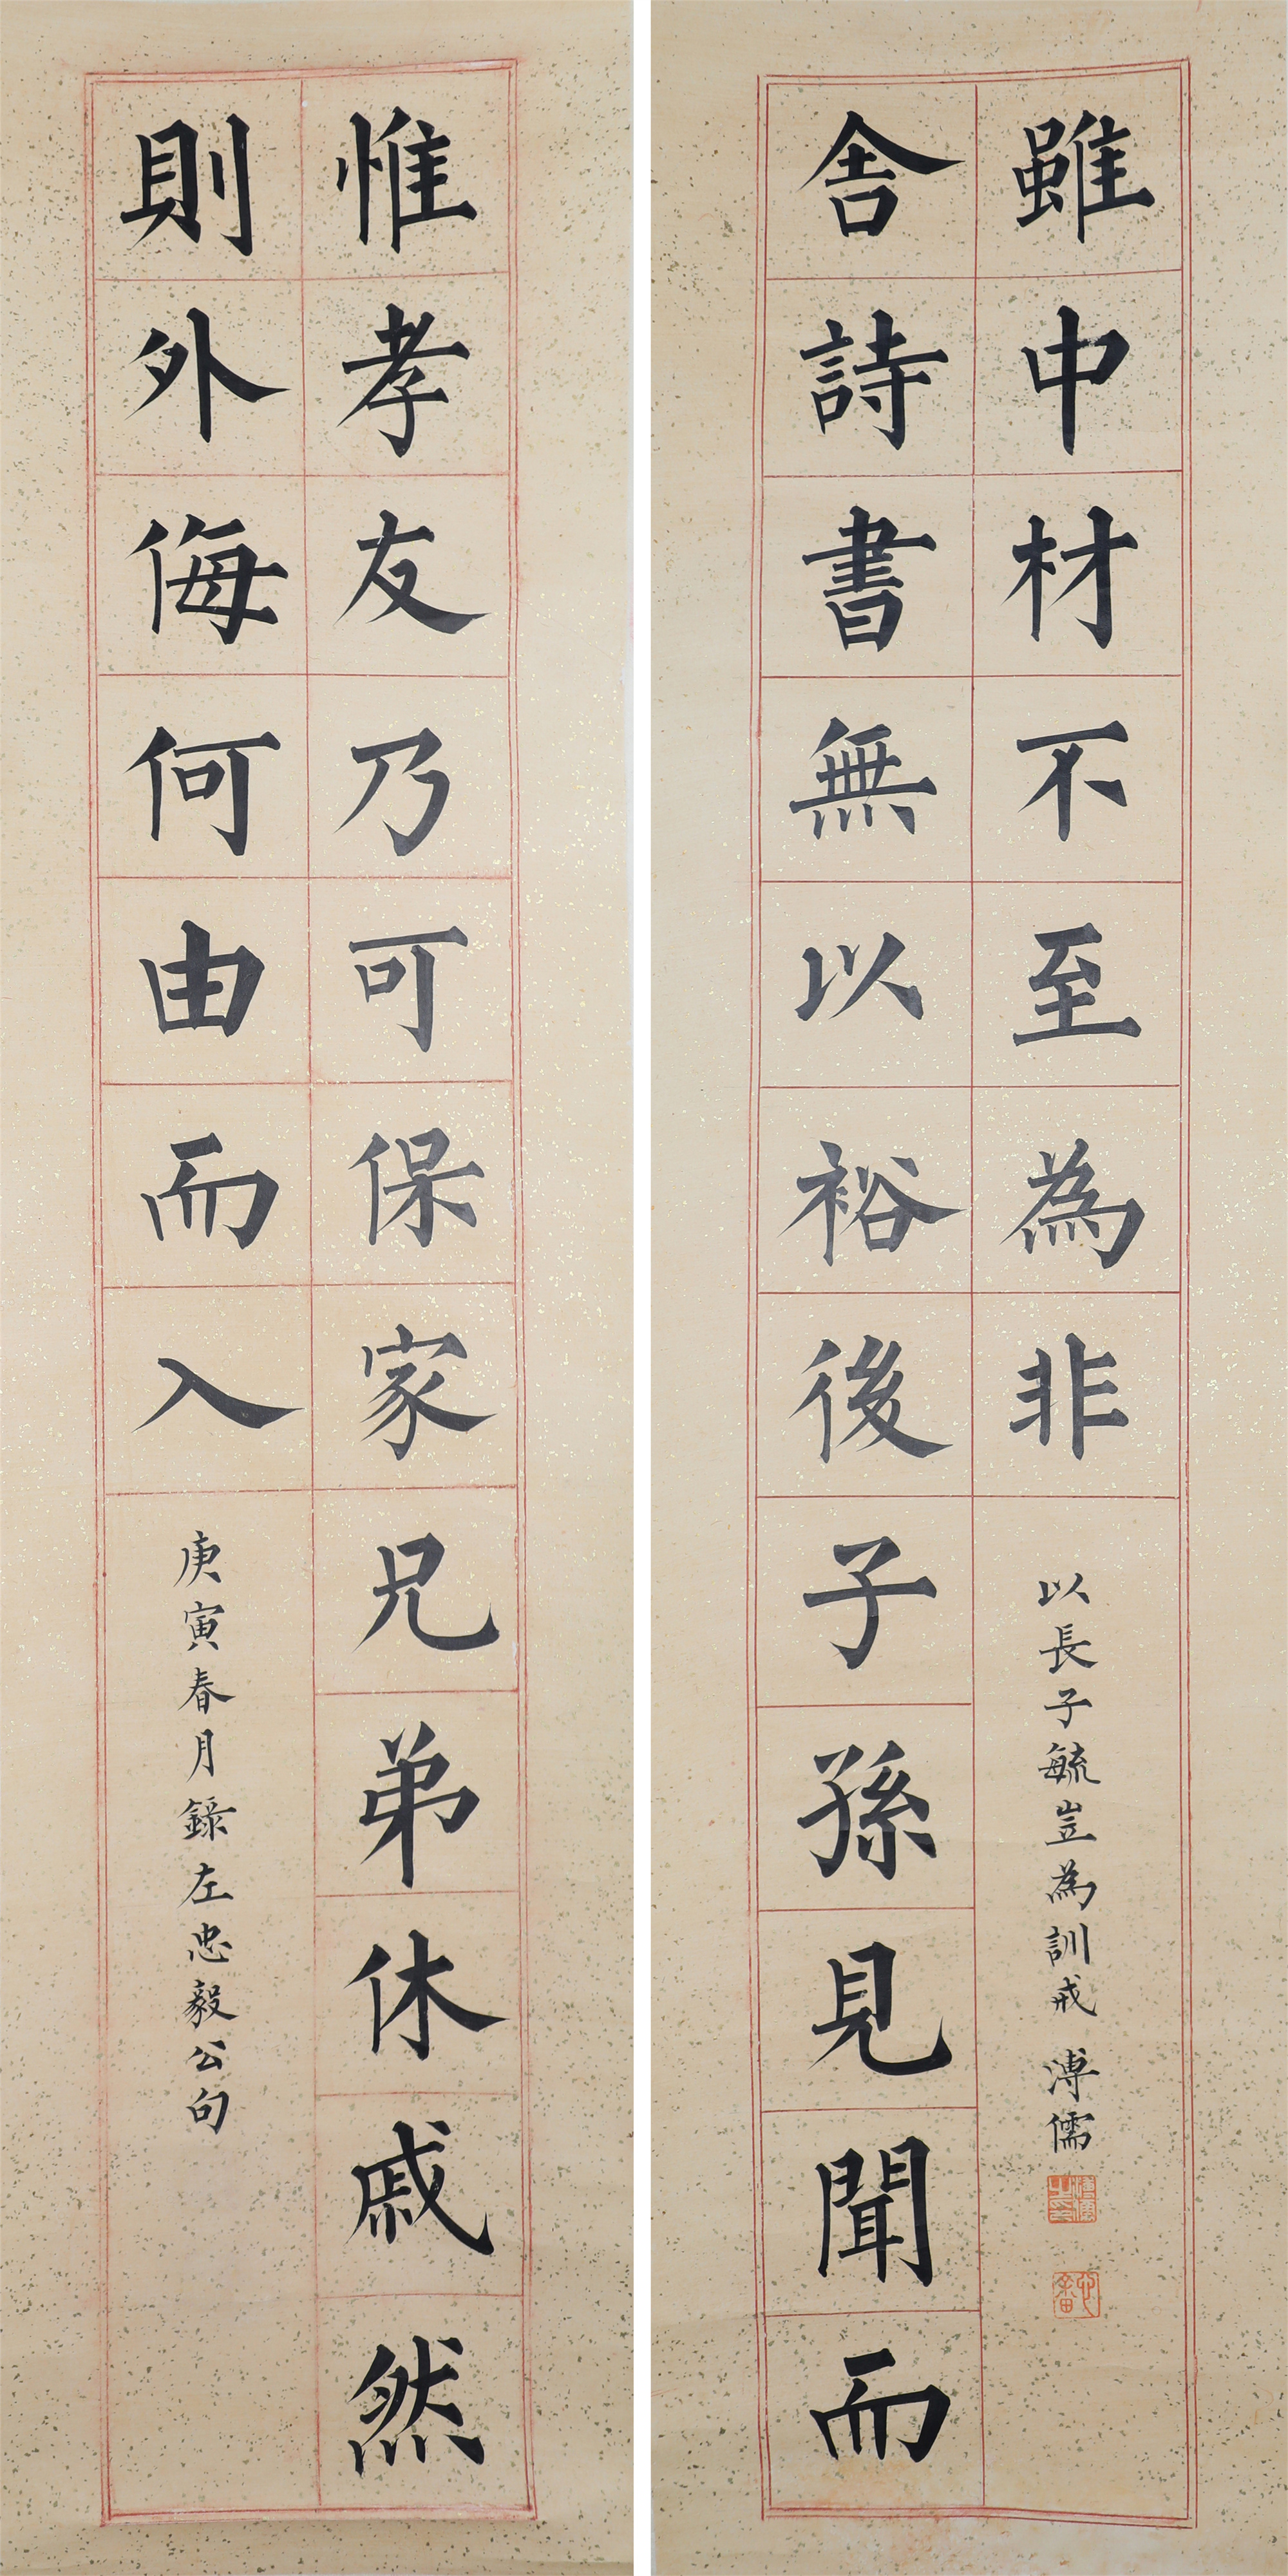 惟孝友乃可保家兄弟休戚然
則外侮何由而入
庚寅春月錄左忠毅公句
舍詩書無以裕後子孫見聞而
雖中材不至為非
以長子毓岦為訓戒 溥儒
溥儒之印
心畬